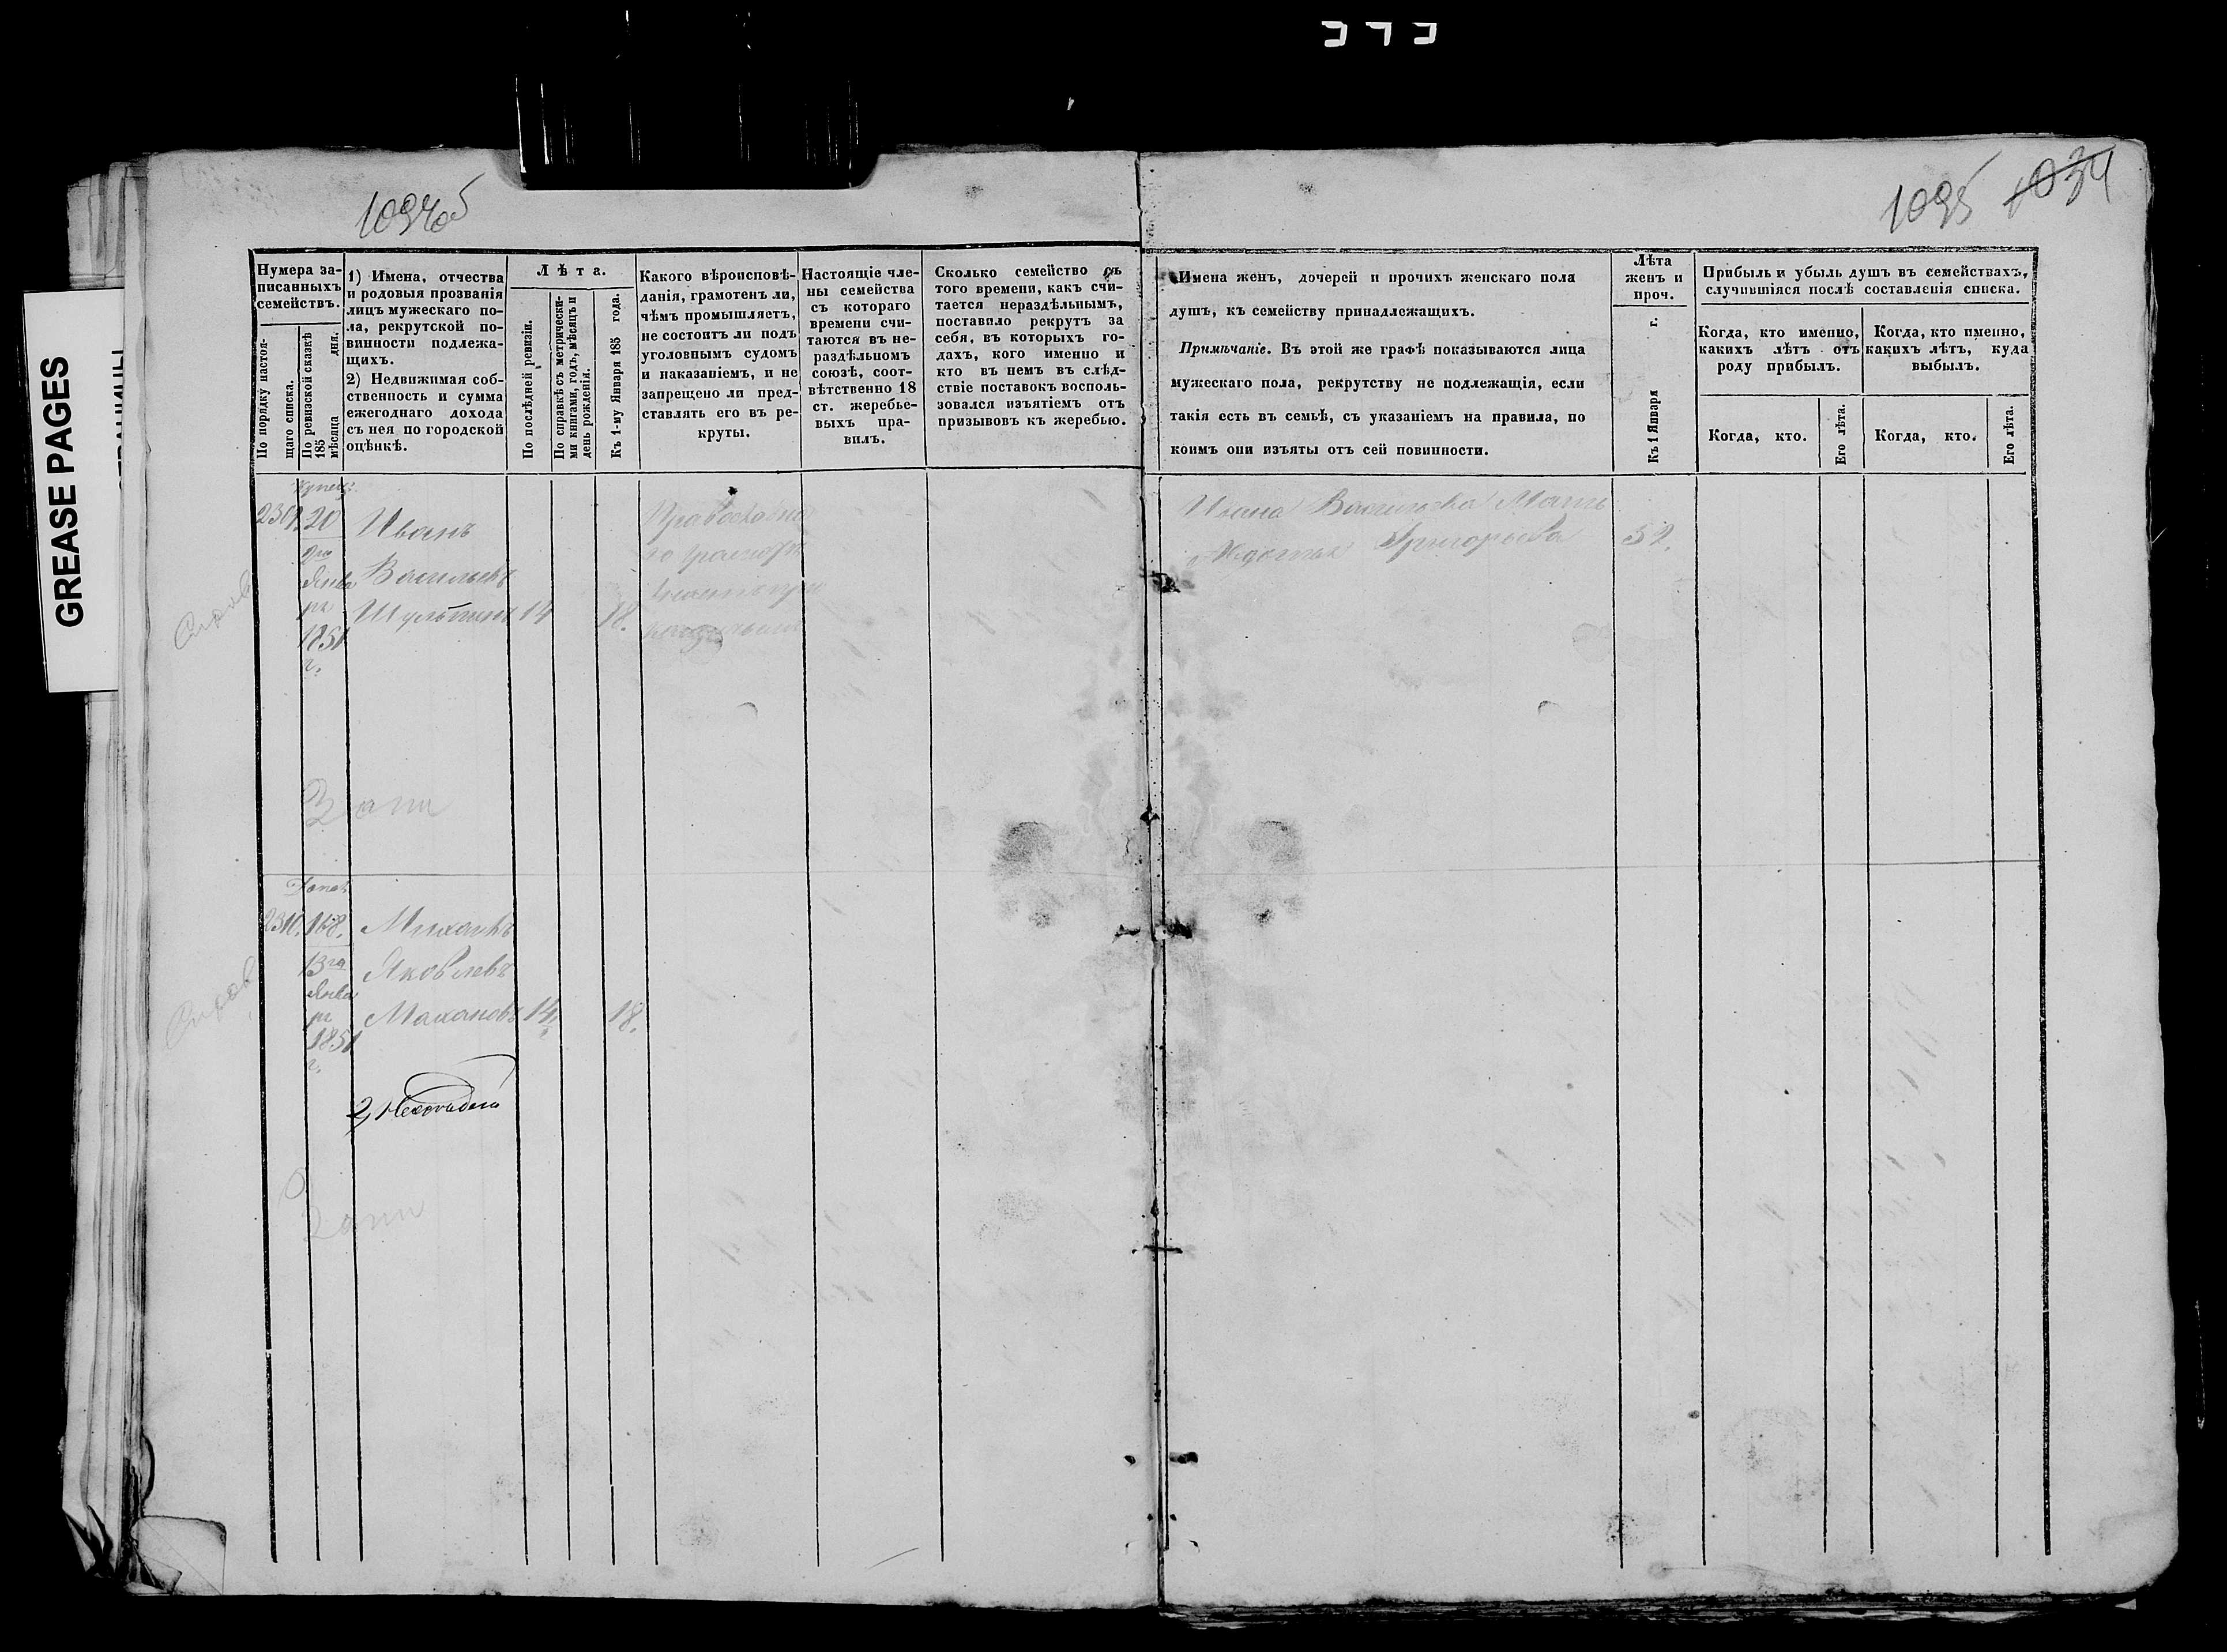 GREASE PAGES
1094об
1095 1034
Нумера записанныхъ семействъ.
По порядку настоящаго списка.
По ревизской сказкѣ 185 мѣсяца дня.
1) Имена, отчества
и родовыя прозванія
лицъ мужескаго по-
ла, рекрутской по-
винности подлежа-
щихъ.
2) Недвижимая соб-
ственность и сумма
ежегоднаго дохода
съ нея по городской
оцѣнкѣ.
Лѣта.
По послѣдней ревизіи.
По справкѣ съ метрически-
ми книгами, годъ, мѣсяцъ и
день рожденія.
Къ 1-му Января 185 года.
Какого вѣроисповѣ-
данія, грамотенъ ли,
чѣмъ промышляетъ,
не состоитъ ли подъ
уголовнымъ судомъ
и наказаніемъ, и не
запрещено ли пред-
ставлять его въ ре-
круты.
Настоящіе чле-
ны семейства
съ котораго
времени счи-
таются въ не-
раздѣльномъ
союзѣ, соот-
вѣтственно 18
ст. жеребье-
выхъ пра-
вилъ.
Сколько семейство съ
того времени, какъ счи-
тается нераздѣльнымъ,
поставило рекрутъ за
себя, въ которыхъ го-
дахъ, кого именно и
кто въ немъ въ слѣд-
ствіе поставокъ восполь-
зовался изъятіемъ отъ
призывовъ къ жеребью.
Имена женъ, дочерей и прочихъ женскаго пола
душъ, къ семейству принадлежащихъ.
Примѣчаніе. Въ этой же графѣ показываются лица
мужескаго пола, рекрутству не подлежащія, если
такія есть въ семьѣ, съ указаніемъ на правила, по
коимъ они изъяты отъ сей повинности.
Лѣта
женъ и
проч.
Къ 1 Января г.
Прибыль и убыль душъ въ семействахъ,
случившіяся послѣ составленія списка.
Когда, кто именно,
какихъ лѣтъ отъ
роду прибылъ.
Когда, кто именно,
какихъ лѣтъ, куда
выбылъ.
Когда, кто.
Его лѣта.
Когда, кто.
Его лѣта.
2309. 20 Иванъ
Васильевъ
14 18.
Января
1851
г.
Ивана Васильева Мать
Григорьева 52.
168. Михаилъ
13го Яковлевъ
Января
Махановъ 14 18.
1851
г.